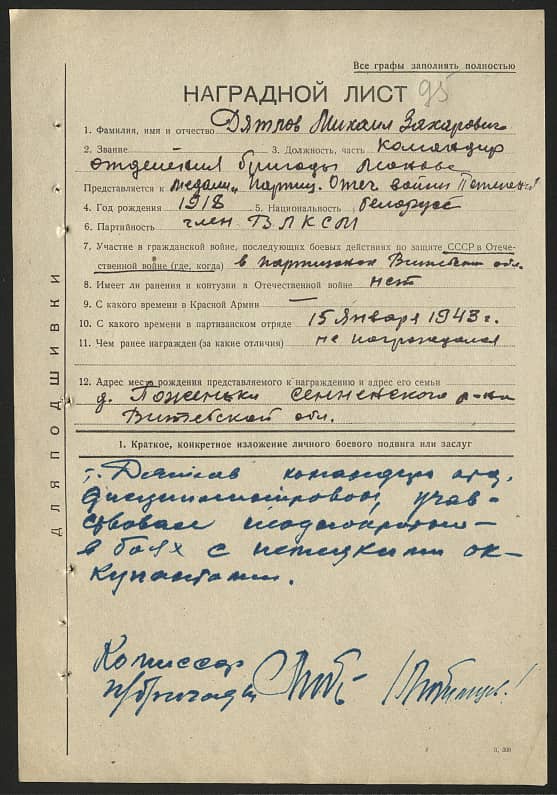 Все графы заполнять полностью
НАГРАДНОЙ ЛИСТ 95
1. Фамилия, имя и отчество Дятлов Михаил Захарович
2. Звание 3. Должность, часть командир
отделения бригады
Представляется к медали „Партиз. Отеч. войны
4. Год рождения 1918 5. Национальность белорус
6. Партийность член ВЛКСМ
7. Участие в гражданской войне, последующих боевых действиях по защите СССР в Отече-
ственной войне (где, когда) в партизанах Витебской обл.
8. Имеет ли ранения и контузии в Отечественной войне нет
9. С какого времени в Красной Армии —
10. С какого времени в партизанском отряде 15 января 1943 г.
11. Чем ранее награжден (за какие отличия) не награждался
12. Адрес места рождения представляемого к награждению и адрес его семьи
д. Сенненского р-на
Витебской обл.
1. Краткое, конкретное изложение личного боевого подвига или заслуг
т. Дятлов командир отд.
дисциплинирован, учав-
ствовал
в боях с немецкими ок-
купантами.
Комиссар
п/бригады
ДЛЯ ПОДШИВКИ